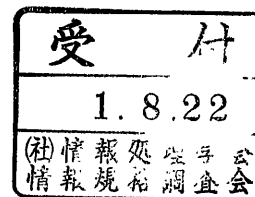 受付
1.8.22
(社)情報処理学会
情報規格調査会